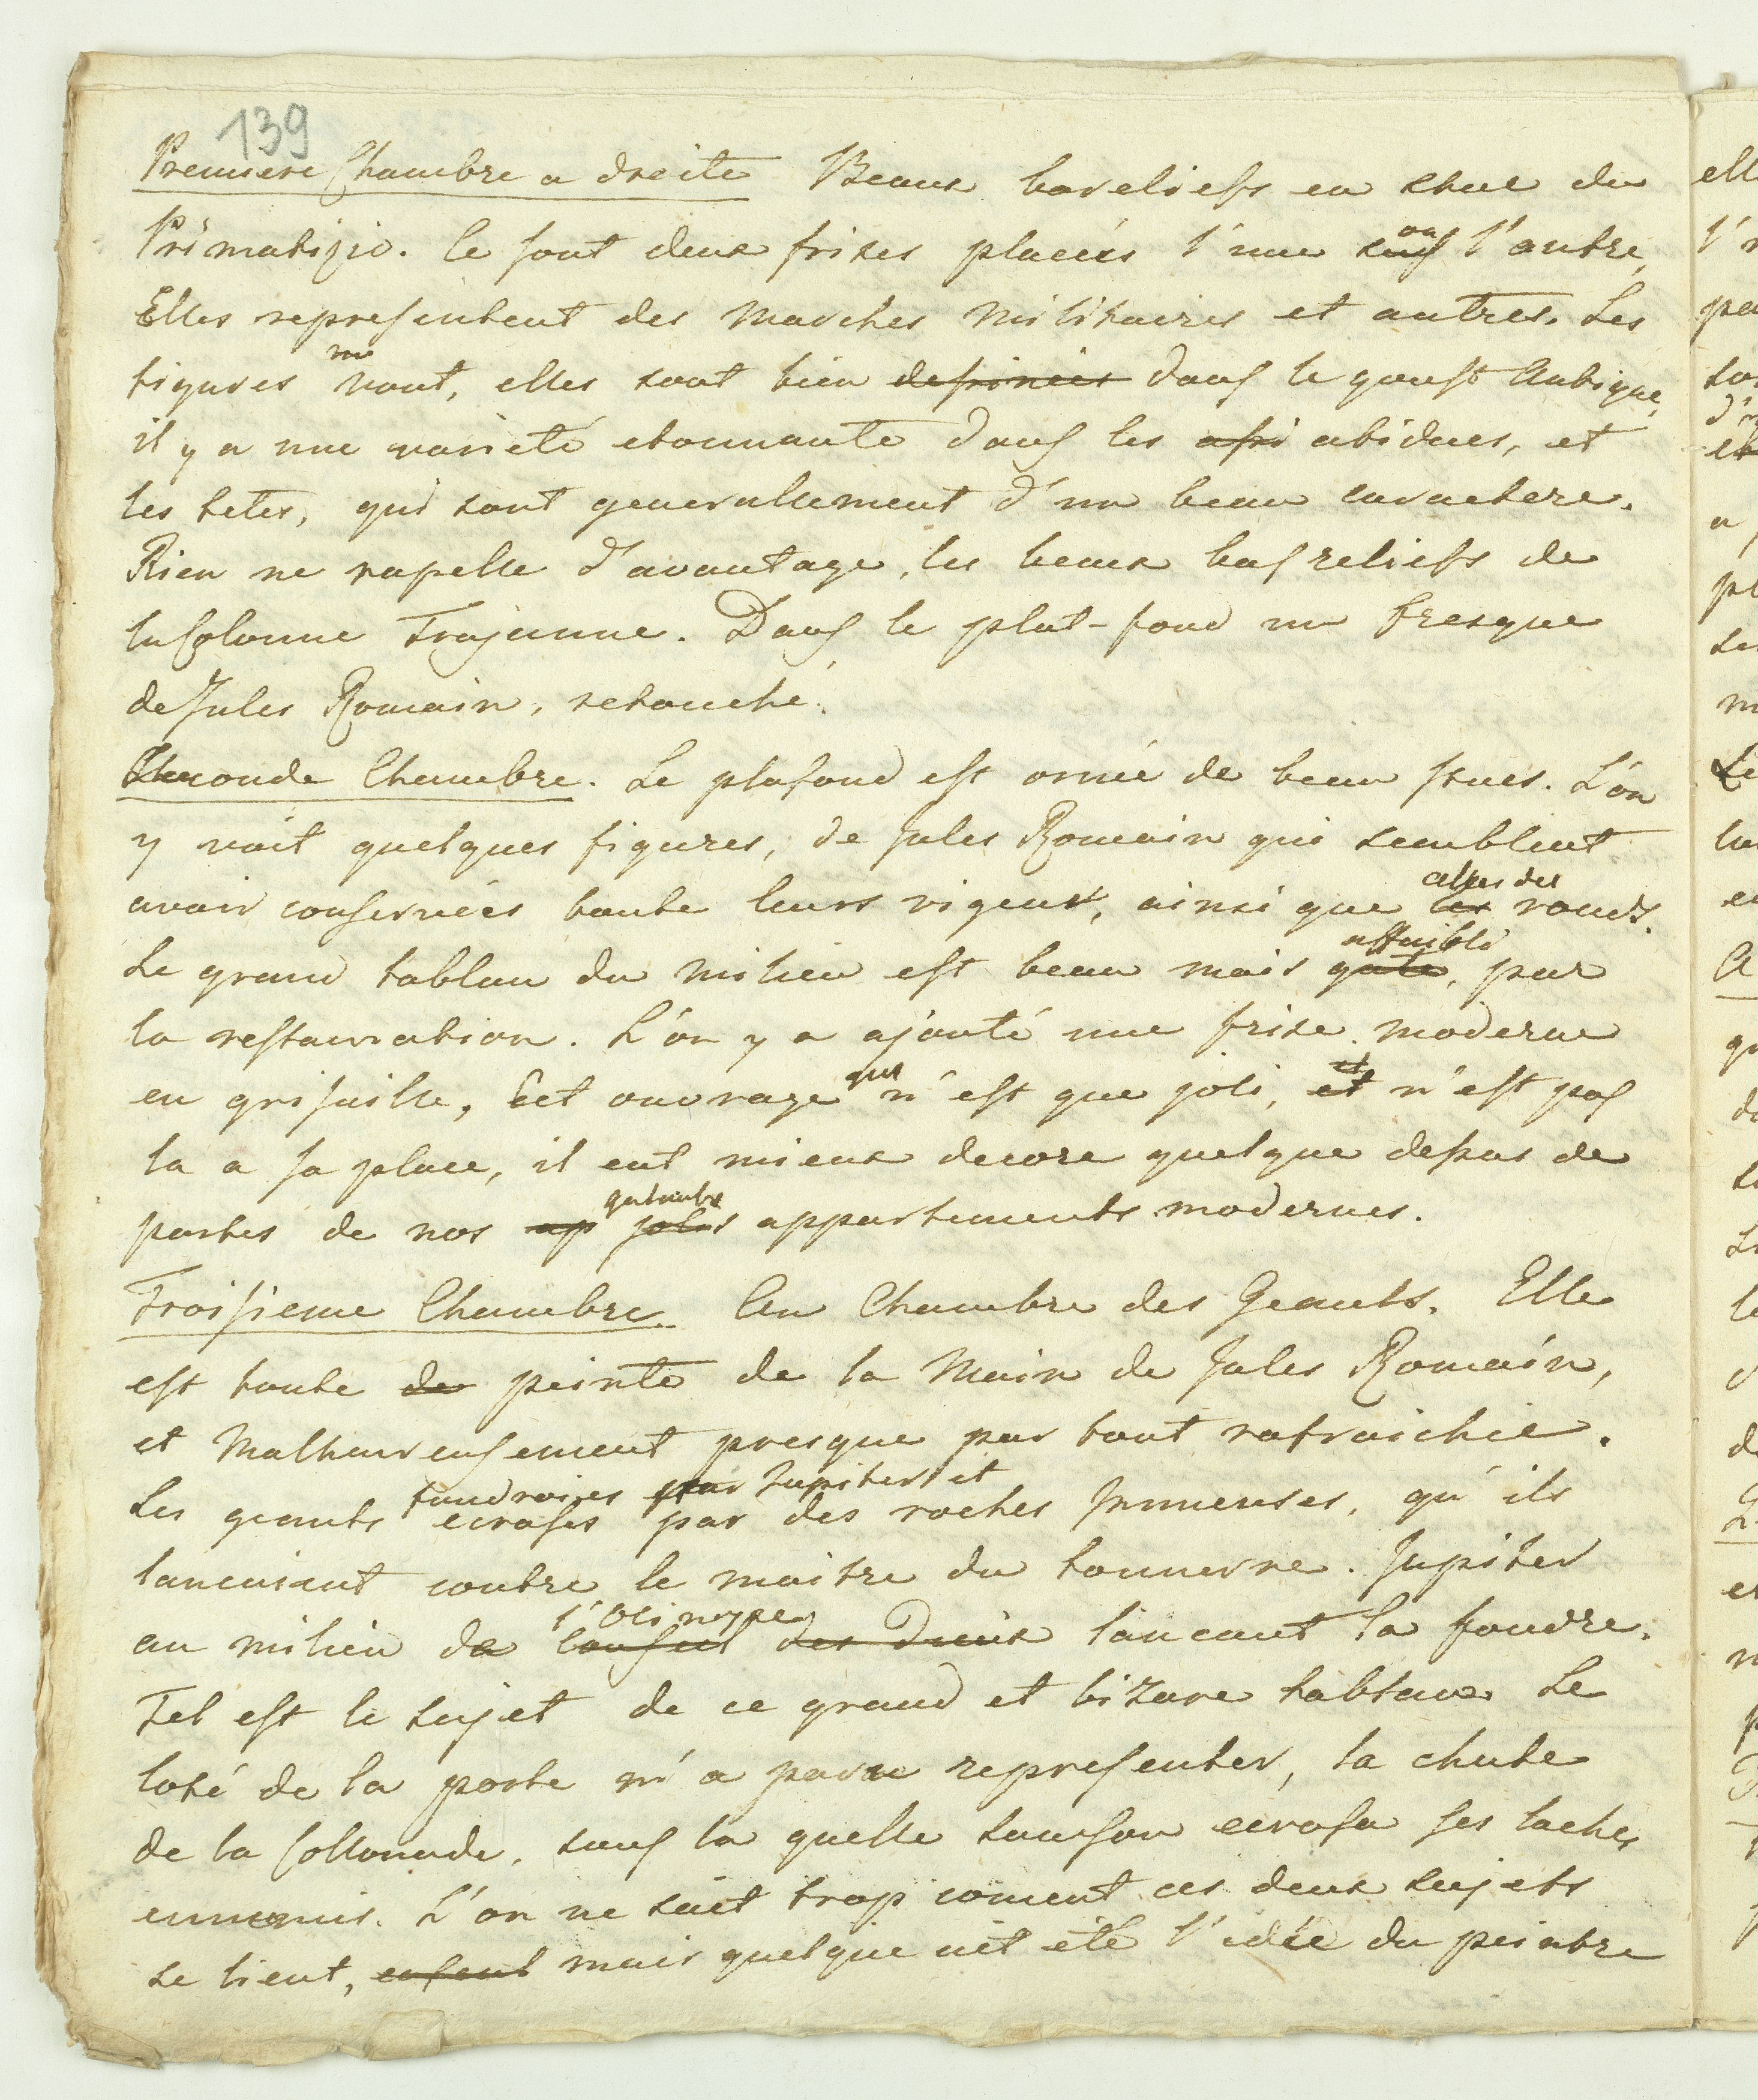 139
Premiere Chambre a droite Beaux bareliefs en stuc du
Primatizio. Ce sont deux frises placées l'une sous l'autre,
Elles representent des Marches Militaires et autres. Les
figures vont, elles sont bien dessinées dans le goust Antique,
il y a une varieté etonnante dans les atidues, et
les tetes, qui sont generallement d'un beau caractere.
Rien ne rapelle d'avantage, les beaux bas reliefs de
la Colonne Trajanne. Dans le plat-fond un fresque
de Jules Romain, retouché.
Seconde Chambre. Le plafond est ornée de beau stucs. L'on
y voit quelques figures, de Jules Romain qui semblent
avoir conservées toute leurs vigeur, ainsi que
celles des
les ronds.
affaibli
Le grand tablau du Milieu est beau mais gaté, par
la restauration. L'on y a ajouté une frise moderne
qui
en grisaille, Cet ouvrage n'est que joli, et n'est pas
la a sa place, il eut mieux decore quelque dessus de
galants
portes de nos ap jolis appartements modernes.
Troisieme Chambre. La Chambre des Geants. Elle
est toute de peinte de la Main de Jules Romain,
et Malheureusement presque par tout rafraichie.
foudroies par Jupiter et
Les geants ecrasés par des roches Immenses, qu'ils
lancaient contre le maitre du tonnerre. Jupiter
l'Olimpe
au milieu de Conseil des Dieux lancant la foudre.
Tel est le sujet de ce grand et bizare tableau Le
Coté de la porte m'a parue representer, la chute
de la Collonade, sous la quelle Samson ecrasa ses laches
ennemis. L'on ne sait trop coment ces deux sujets
se lient, mais quelque ait été l'idée du peintre